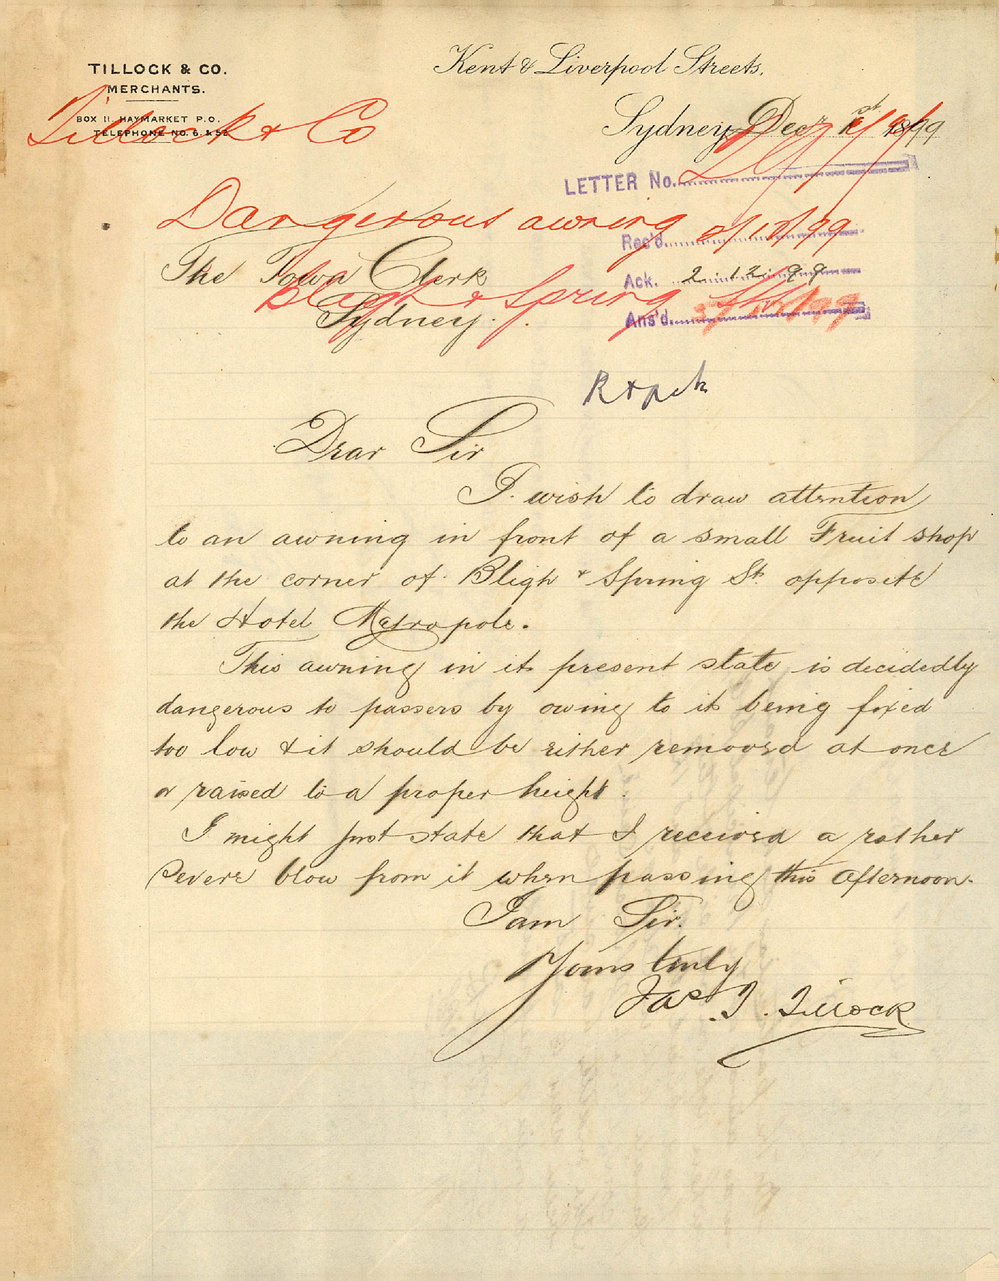 TILLOCK & CO.
MERCHANTS.
BOX 11. HAYMARKET P.O.
TELEPHONE NO. 6. & 52
Kent & Liverpool Streets,
Sydney, Decr 1st 1899
Tillock & Co
LETTER No.
Dangerous awning
Rec'd. 2/12/99
The Town Clerk
Ack. 2.12.99
Bligh & Spring St
Sydney.
Ans'd.
Dear Sir
I wish to draw attention
to an awning in front of a small Fruit shop
at the corner of Bligh & Spring St. opposite
the Hotel Metropole.
This awning in it present state is decidedly
dangerous to passers by owing to it being fixed
too low & it should be either removed at once
or raised to a proper height.
I might just state that I received a rather
severe blow from it when passing this afternoon.
I am Sir.
Yours truly
Jas. T. Tillock